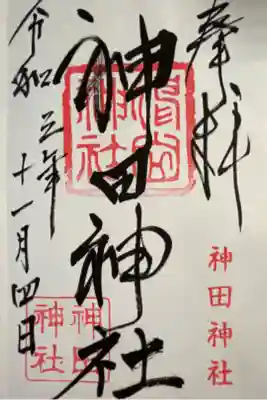 奉拝
神田神社
神田神社
令和五年十一月四日
神田
神社